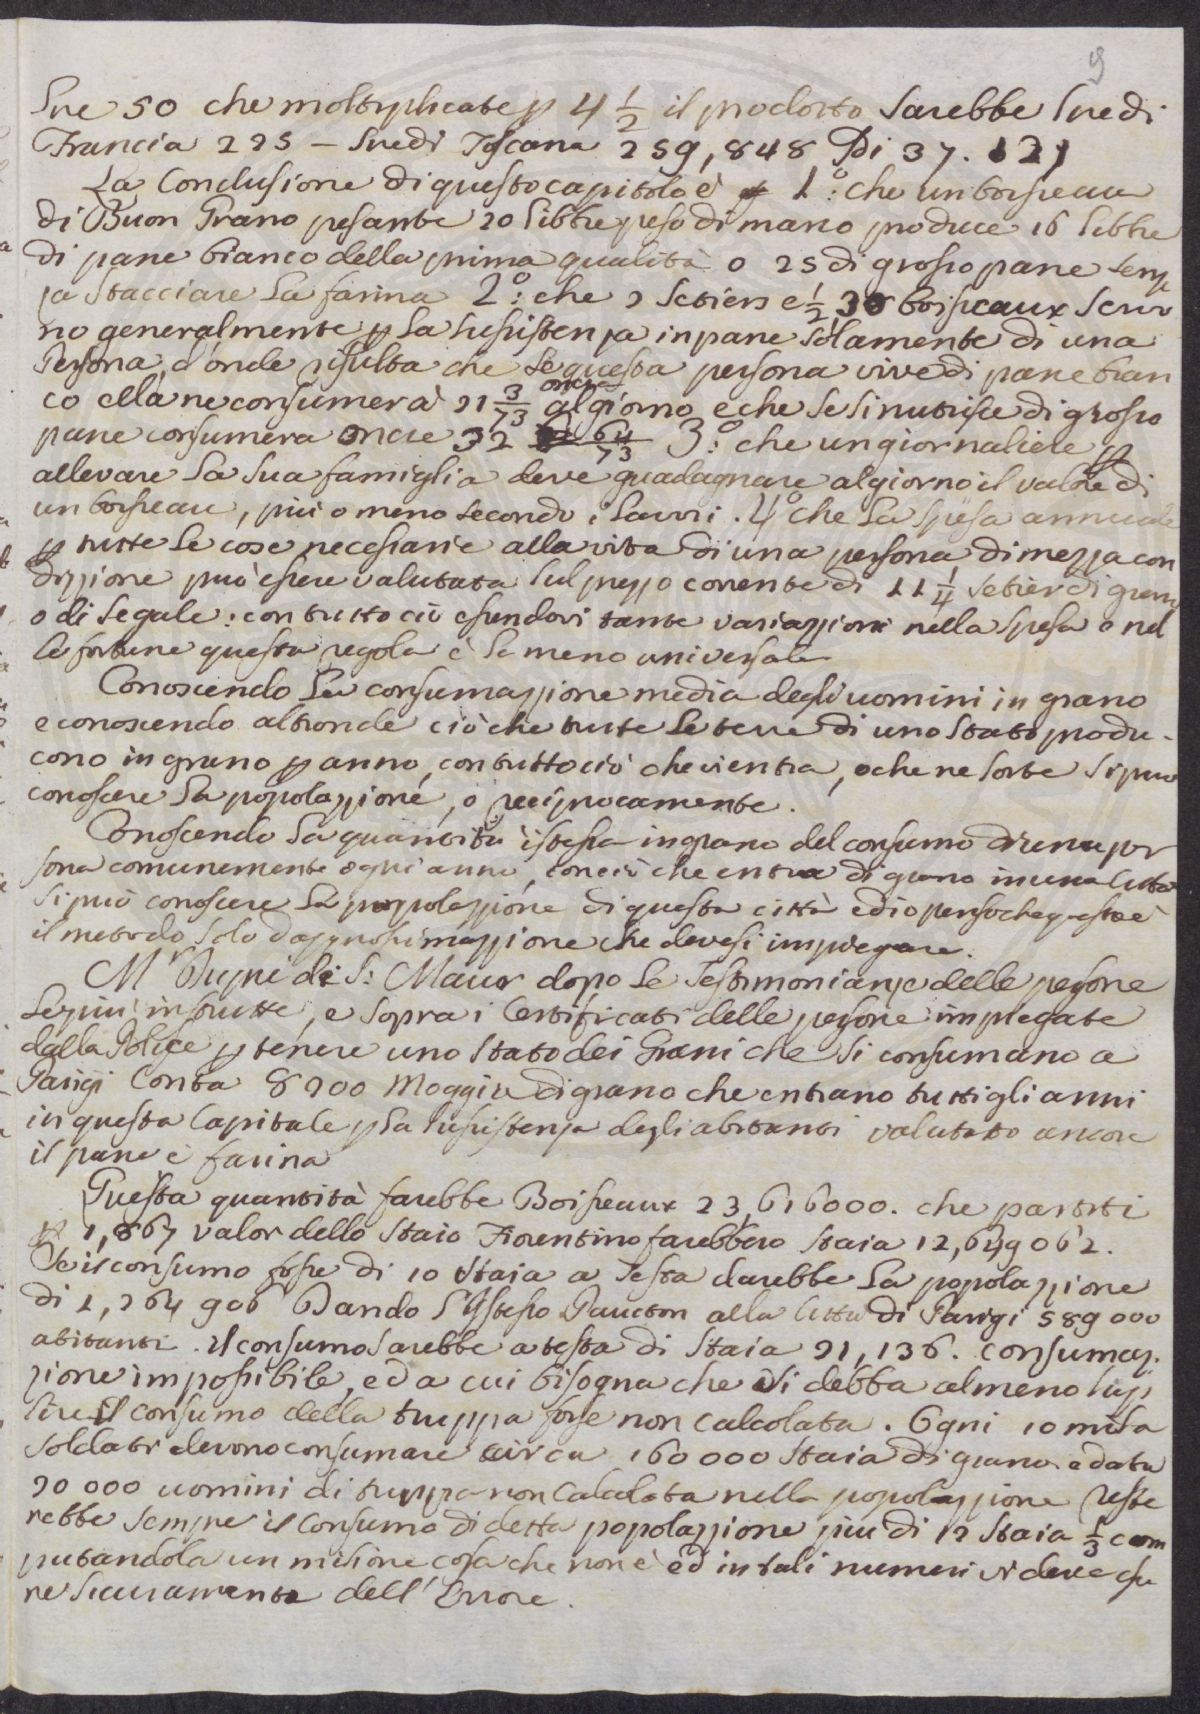 9
Lire 50 che moltiplicate p 4 1/2 il prodotto sarebbe Lire di
Francia 225 – Lire di Toscana 259,848 Di 37. 121
La Conclusione di questo capitolo è 1.° che un boisseau
di Buon Grano pesante 20 libbre peso di marco produce 16 libbre
di pane bianco della prima qualità o 25 di grosso pane senz
za stacciare la farina 2.° che 2 Setiers e 1/2 30 boisseaux servo
no generalmente p la sussistenza in pane solamente di una
Persona, d'onde risulta che se questa persona vive di pane bian
co ella ne consumerà 21 3/73 once al giorno, e che se si nutrisce di grosso
pane consumera once 32 64/73 3.° che un giornaliere p
allevare la sua famiglia deve guadagnare al giorno il valore di
un boisseau, più o meno secondo i lavori. 4.° che la spesa annuale
p tutte le cose necessarie alla vita di una persona di mezza con
dizzione può essere valutata sul prezzo corrente di 11 1/4 Setier di grano
o di segale: con tutto ciò essendovi tante variazzioni nella spesa o nel
le fortune questa regola è la meno universale
Conoscendo la consumazzione media degli uomini in grano
e conoscendo altronde ciò che tutte le terre di uno stato produ-
cono in grano p anno, con tutto ciò che vi entra, o che ne sorte si può
conoscere la popolazzione, o reciprocamente.
Conoscendo la quantità istessa in grano del consumo di una per
sona comunemente ogni anno, con ciò che entra di grano in una Città
si può conoscere la popolazzione di questa città ed io penso che questo è
il metodo solo d'approssimazzione che devesi impiegare.
Mr Dupré de S: Maur dopo le Testimonianze delle persone
le più instrutte, e sopra i Certificati delle persone impiegate
dalla Police p tenere uno stato dei Grani che si consumano a
Parigi Conta 8200 Moggia di grano che entrano tutti gli anni
in questa Capitale p la sussistenza degli abitanti valutato ancora
il pane e farina
Questa quantità farebbe Boisseaux 23,616000. che partiti
p 1,867 valor dello Staio Fiorentino farebbero Staia 12,649062.
Se il consumo fosse di 10 Staia a Testa darebbe la popolazzione
di 1,264906 Dando l'Istesso Paucton alla Città di Parigi 589000
abitanti. il consumo sarebbe a testa di Staia 21,136. consumaz.
zione impossibile, ed a cui bisogna che si debba almeno sup
lire il consumo della truppa forse non calcolata. Ogni 10 mila
soldati devono consumare circa 160000 Staia di grano e data
20000 uomini di truppa non calcolata nella popolazzione reste
rebbe sempre il consumo di detta popolazzione più di 12 Staia 1/3 com
putandola un milione cosa che non è ed in tali numeri vi deve esse
re sicuramente dell'Errore.